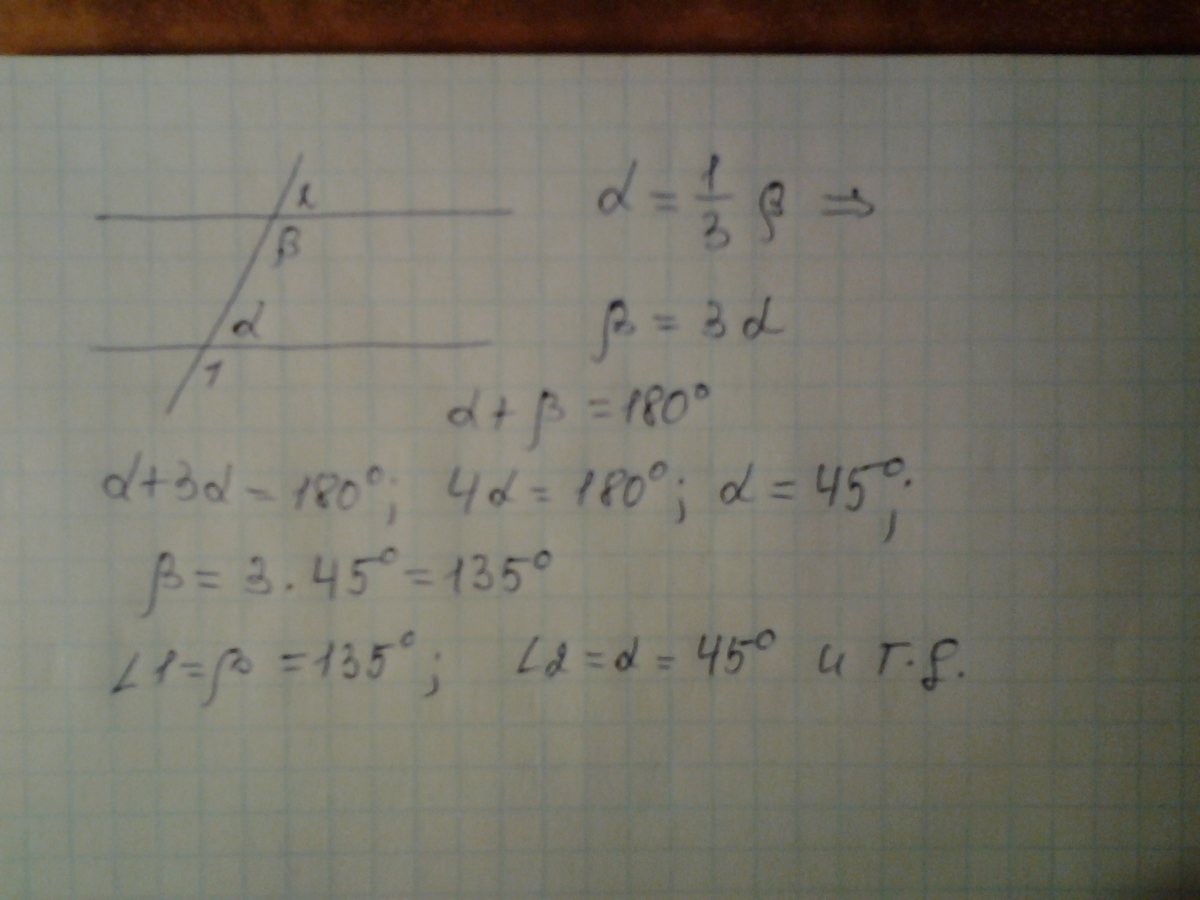 2
β
α
1
α = 1/3 β ⇒
β = 3α
α + β = 180°
α+3α = 180°; 4α = 180°; α = 45°;
β = 3 · 45° = 135°
∠1 = β = 135°; ∠2 = α = 45° и т.д.